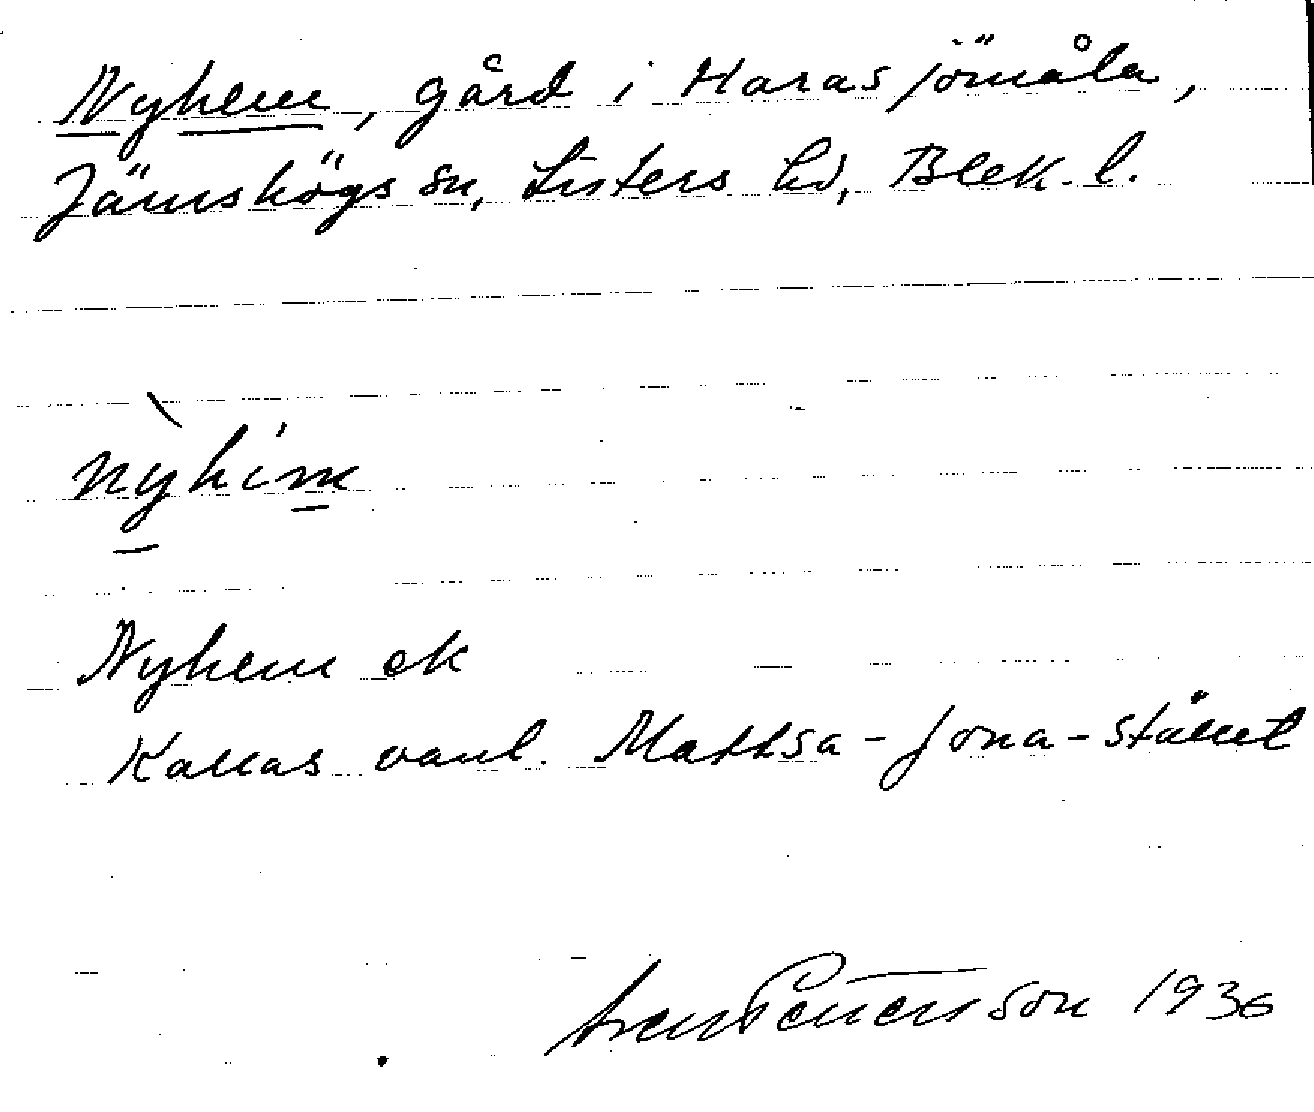 Nyhem, gård i Harasjömåla,
Jämshögs sn, Listers hd, Blek. l.
nỳhim
Nyhem ek
Kallas vanl. Mattsa-Jona-stället
Sven Petterson 1936